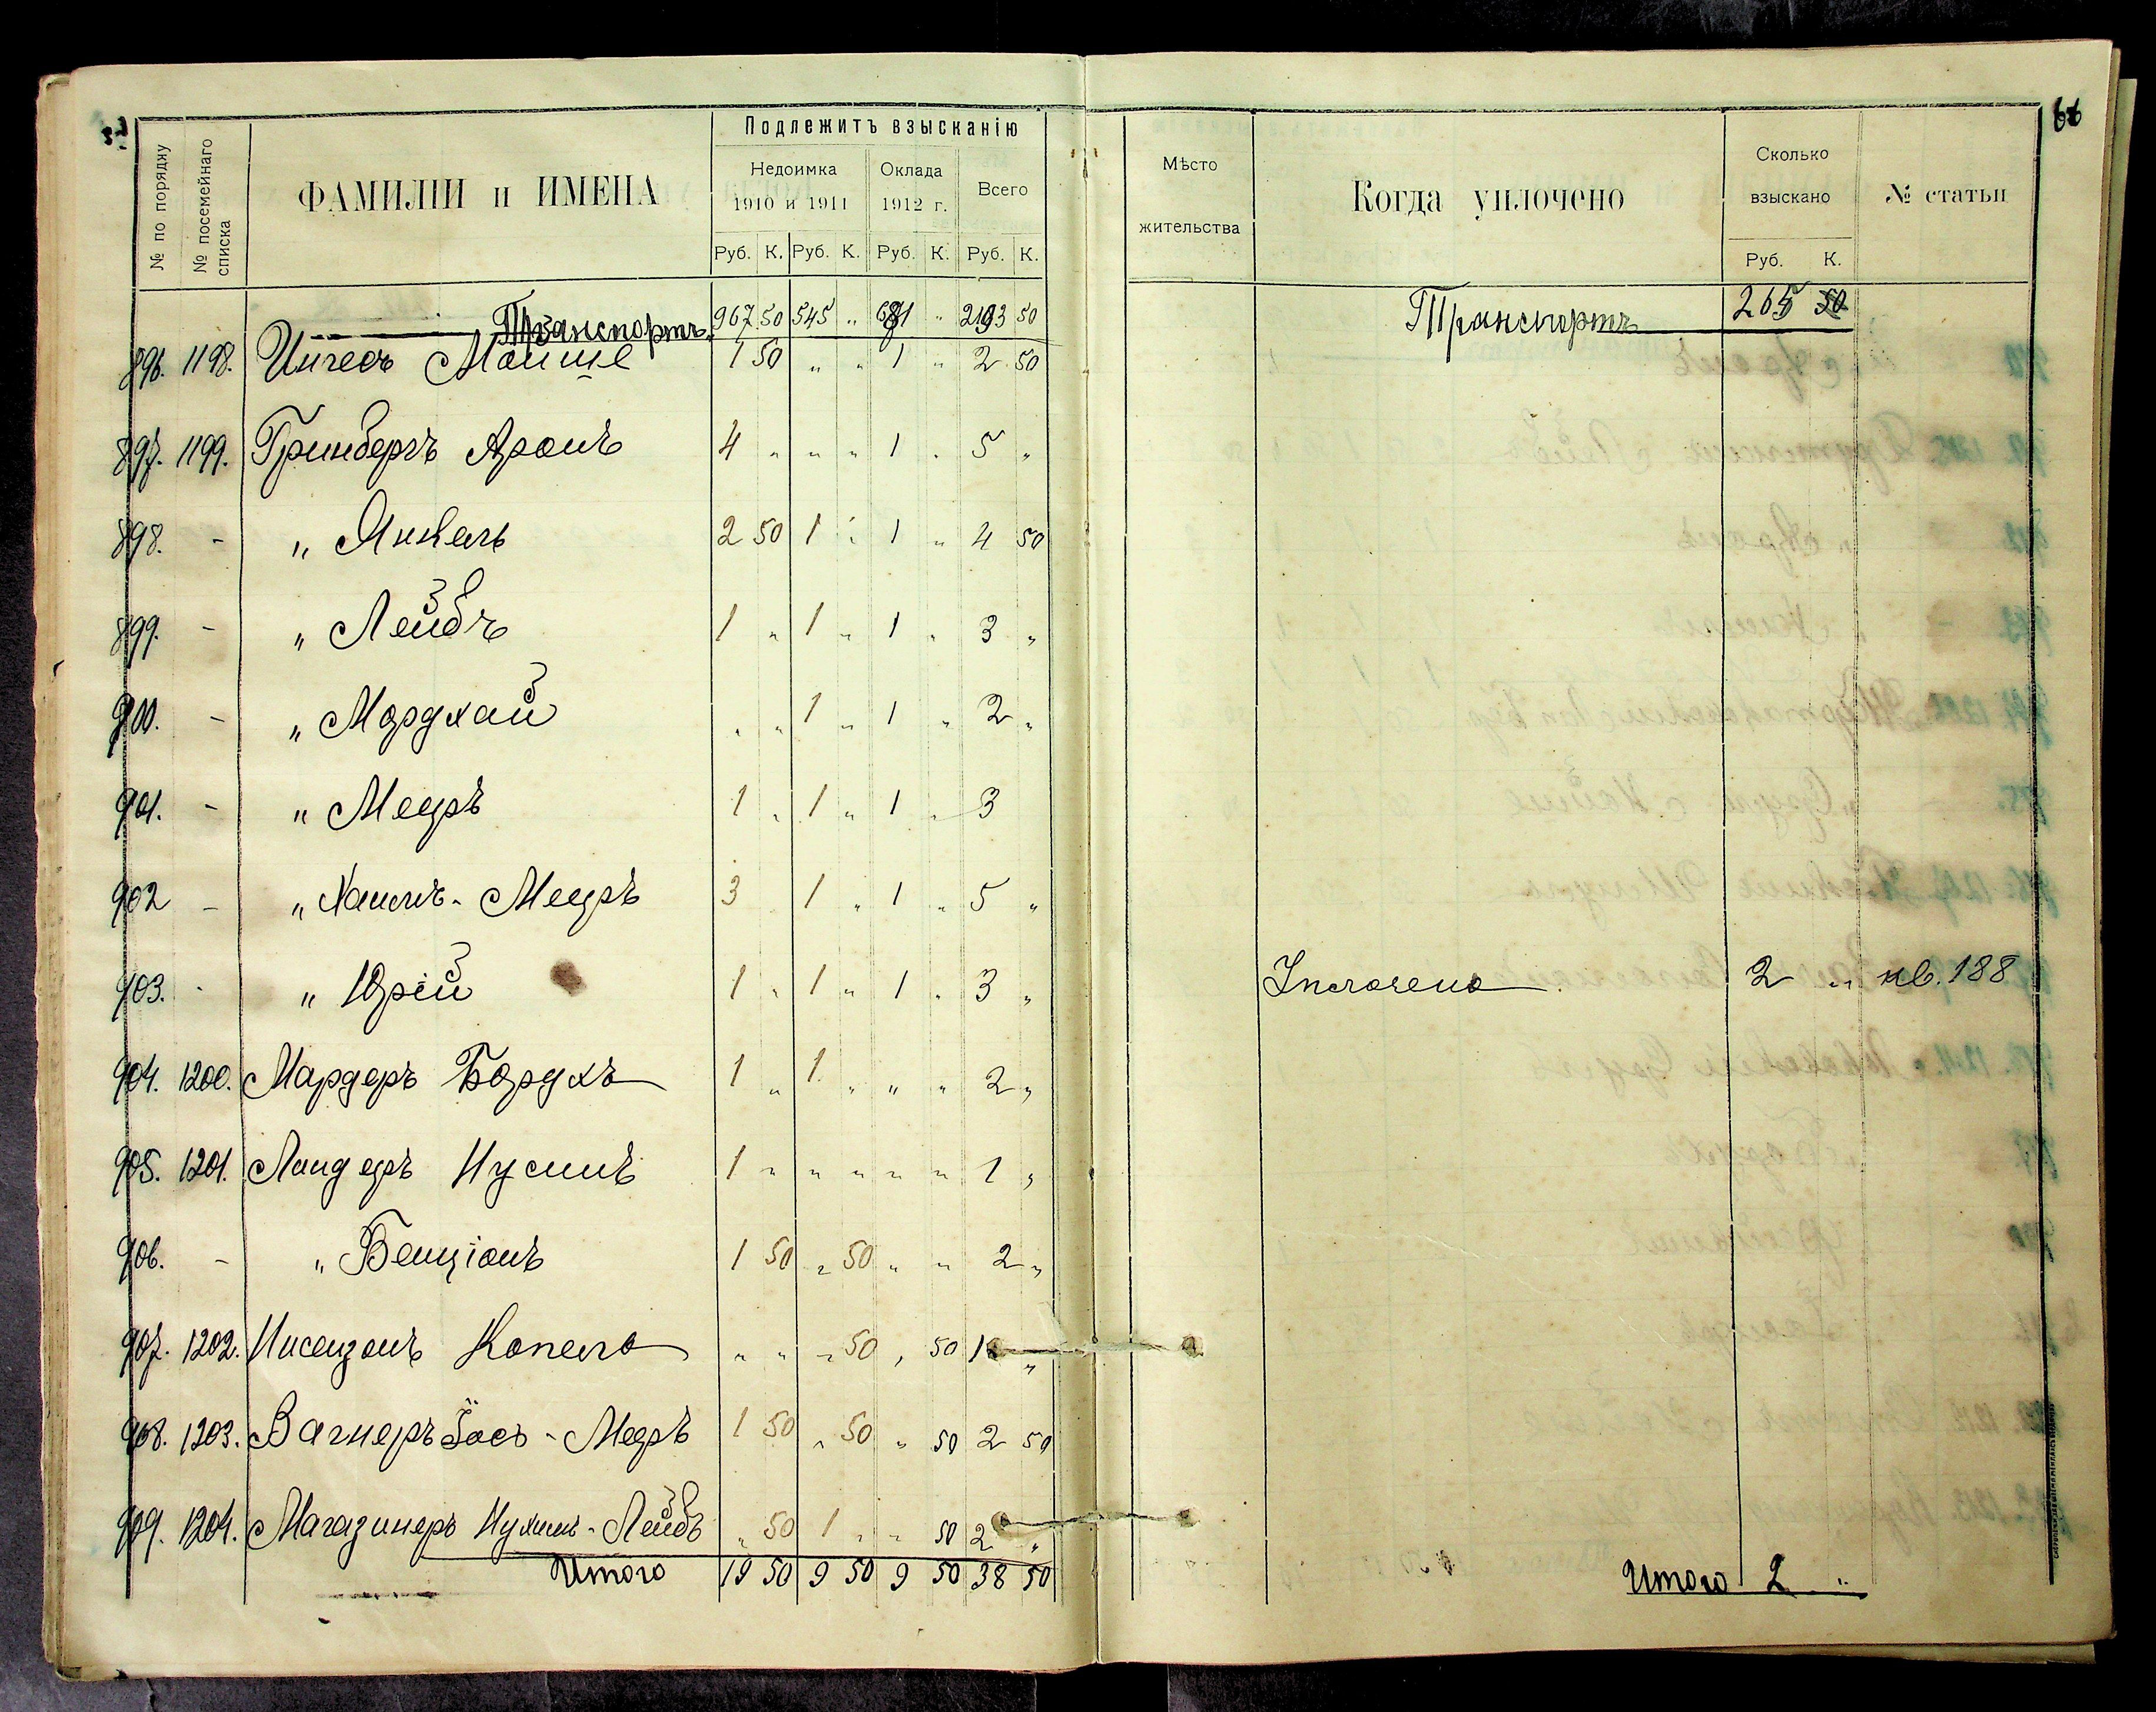 66
№ по порядку
№ посемейнаго списка
ФАМИЛІИ и ИМЕНА
Подлежитъ взысканію
Недоимка
1910 и 1911
Оклада
1912 г.
Всего
Руб. К. Руб. К. Руб. К. Руб. К.
Мѣсто
жительства
Когда уплочено
Сколько
взыскано
Руб. К.
№ статьи
Транспортъ 967 50 545 „ 681 „ 2193 50
Транспортъ 265 50
896. 1198. Моише 1 50 „ „ 1 „ 2 50
897. 1199. Гринбергъ Аронъ 4 „ „ „ 1 „ 5 „
898. - „ Янкель 2 50 1 „ 1 „ 4 50
899. - „ Лейбъ 1 „ 1 „ 1 „ 3 „
900. - „ Мордхай „ „ 1 „ 1 „ 2 „
901. - „ Мееръ 1 „ 1 „ 1 „ 3
902 - „ Хаимъ-Мееръ 3 1 „ 1 „ 5 „
903. - „ Юрій 1 „ 1 „ 1 „ 3 „ 2 „ кв. 188
904. 1200. Мардеръ Борухъ 1 „ 1 „ „ „ 2 „
905. 1201. Ландеръ Нусинъ 1 „ „ „ „ „ 1 „
906. - „ Бенціонъ 1 50 „ 50 „ „ 2 „
907. 1202. Нисензонъ Копель „ „ „ 50 „ 50 1 „
908. 1203. Вагнеръ Іось-Мееръ 1 50 „ 50 „ 50 2 50
909. 1204. Магазинеръ Нухимъ-Лейбъ „ 50 1 „ „ 50 2 „
Итого 19 50 9 50 9 50 38 50
Итого 2 „